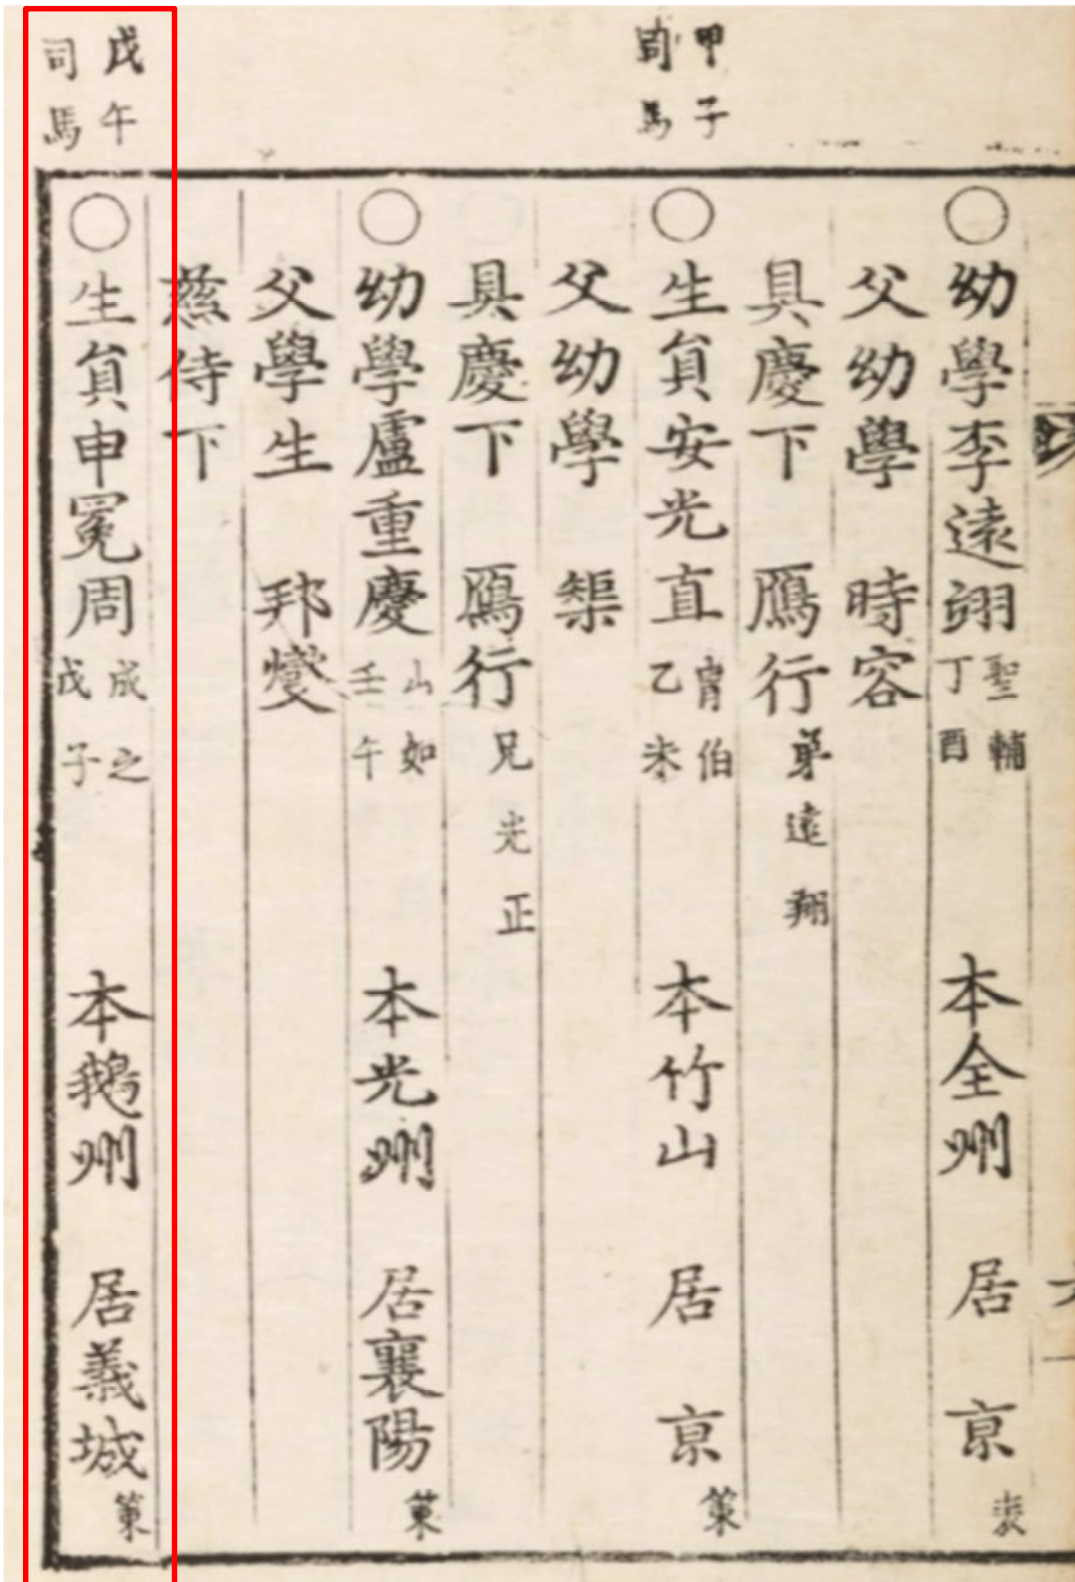 甲子
司馬
戊午
司馬
○幼學李遠翊 聖輔 丁酉 本全州 居京 表
父幼學 時容
具慶下 鴈行 弟遠翔
○生員安光直 胄伯 乙未 本竹山 居京 策
父幼學 榘
具慶下 鴈行 兄光正
○幼學盧重慶 山如 壬午 本光州 居襄陽 策
父學生 邦燮
慈侍下
○生員申冕周 成之 戊子 本鵝州 居義城 策